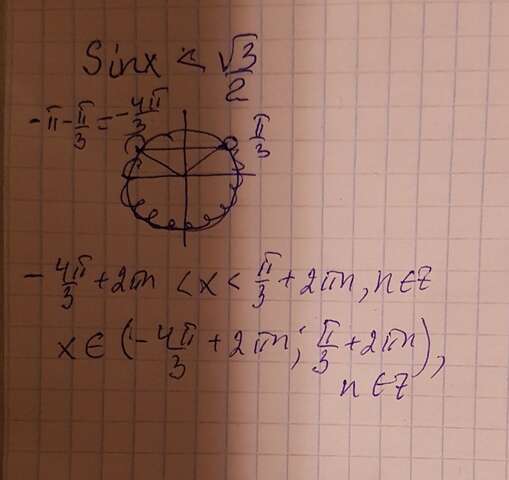 Sinx < √3/2
-π-π/3=-4π/3
π/3
-4π/3+2πn <x< π/3+2πn, n∈Z
x∈(-4π/3+2πn; π/3+2πn),
n∈Z